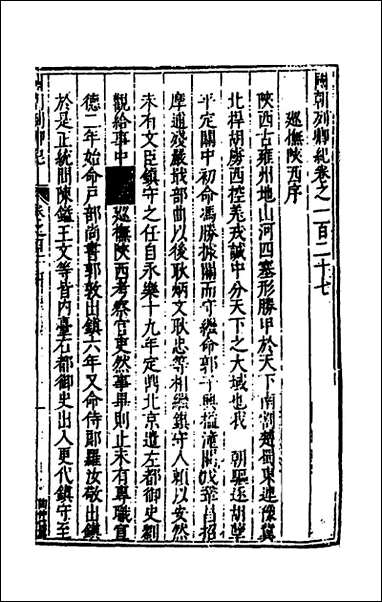 國朝列卿紀卷之一百二十七
巡撫陝西序
陝西古雍州地山河四塞形勝甲於天下南割楚蜀東連豫冀
北捍胡虜西控羌戎誠中分天下之大域也我 朝驅逐胡孽
平定關中初命馮勝據關而守繼命郭子興搤潼關
摩遁殘嚴戢部曲以後耿炳文耿忠等相繼鎮守人賴以安然
未有文臣鎮守之任自永樂十九年定鼎北京遣左都御史劉
觀給事中 巡撫陝西考察官吏然事畢則止未有專職宣
德二年始命戶部尚書郭敦出鎮六年又命侍郎羅汝敬出鎮
於是正統間陳鎰王文等皆內臺右都御史出入更代鎮守至